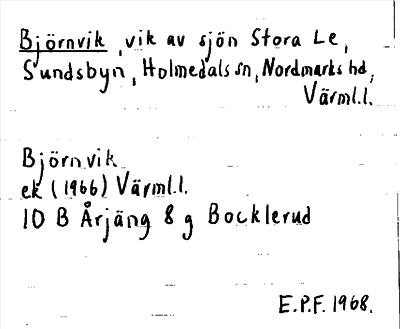 Björnvik, vik av sjön Stora Le,
Sundsbyn, Holmedals sn, Nordmarks hd,
Värml.l.
Björnvik
ek (1966) Värml.l.
10 B Årjäng 8 g Bocklerud
E.P.F. 1968.